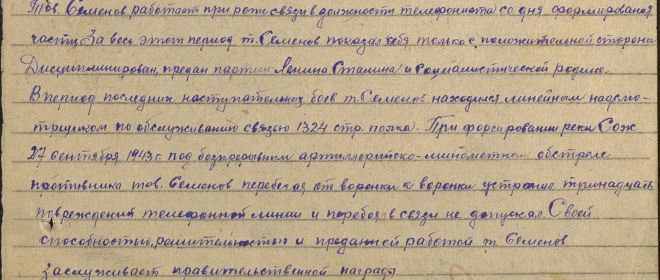 Тов. Семенов работает при роте связи в должности телефониста со дня формирования
части. За весь этот период т. Семенов показал себя только с положительной стороны
Дисциплинирован, предан партии Ленина Сталина и социалистической родине.
В период последних наступательных боев т. Семенов находился линейным надсмо-
трщиком по обслуживанию связью 1324 стр. полка. При форсировании реки Сож
27 сентября 1943 г. под безпрерывным артиллерийско-минометным обстрелом
противника тов. Семенов перебегая от воронки к воронке устранил тринадцать
повреждений телефонной линии и перебоя в связи не допускал. Своей
способностью, решительностью и преданной работой т. Семенов
заслуживает правительственной награды